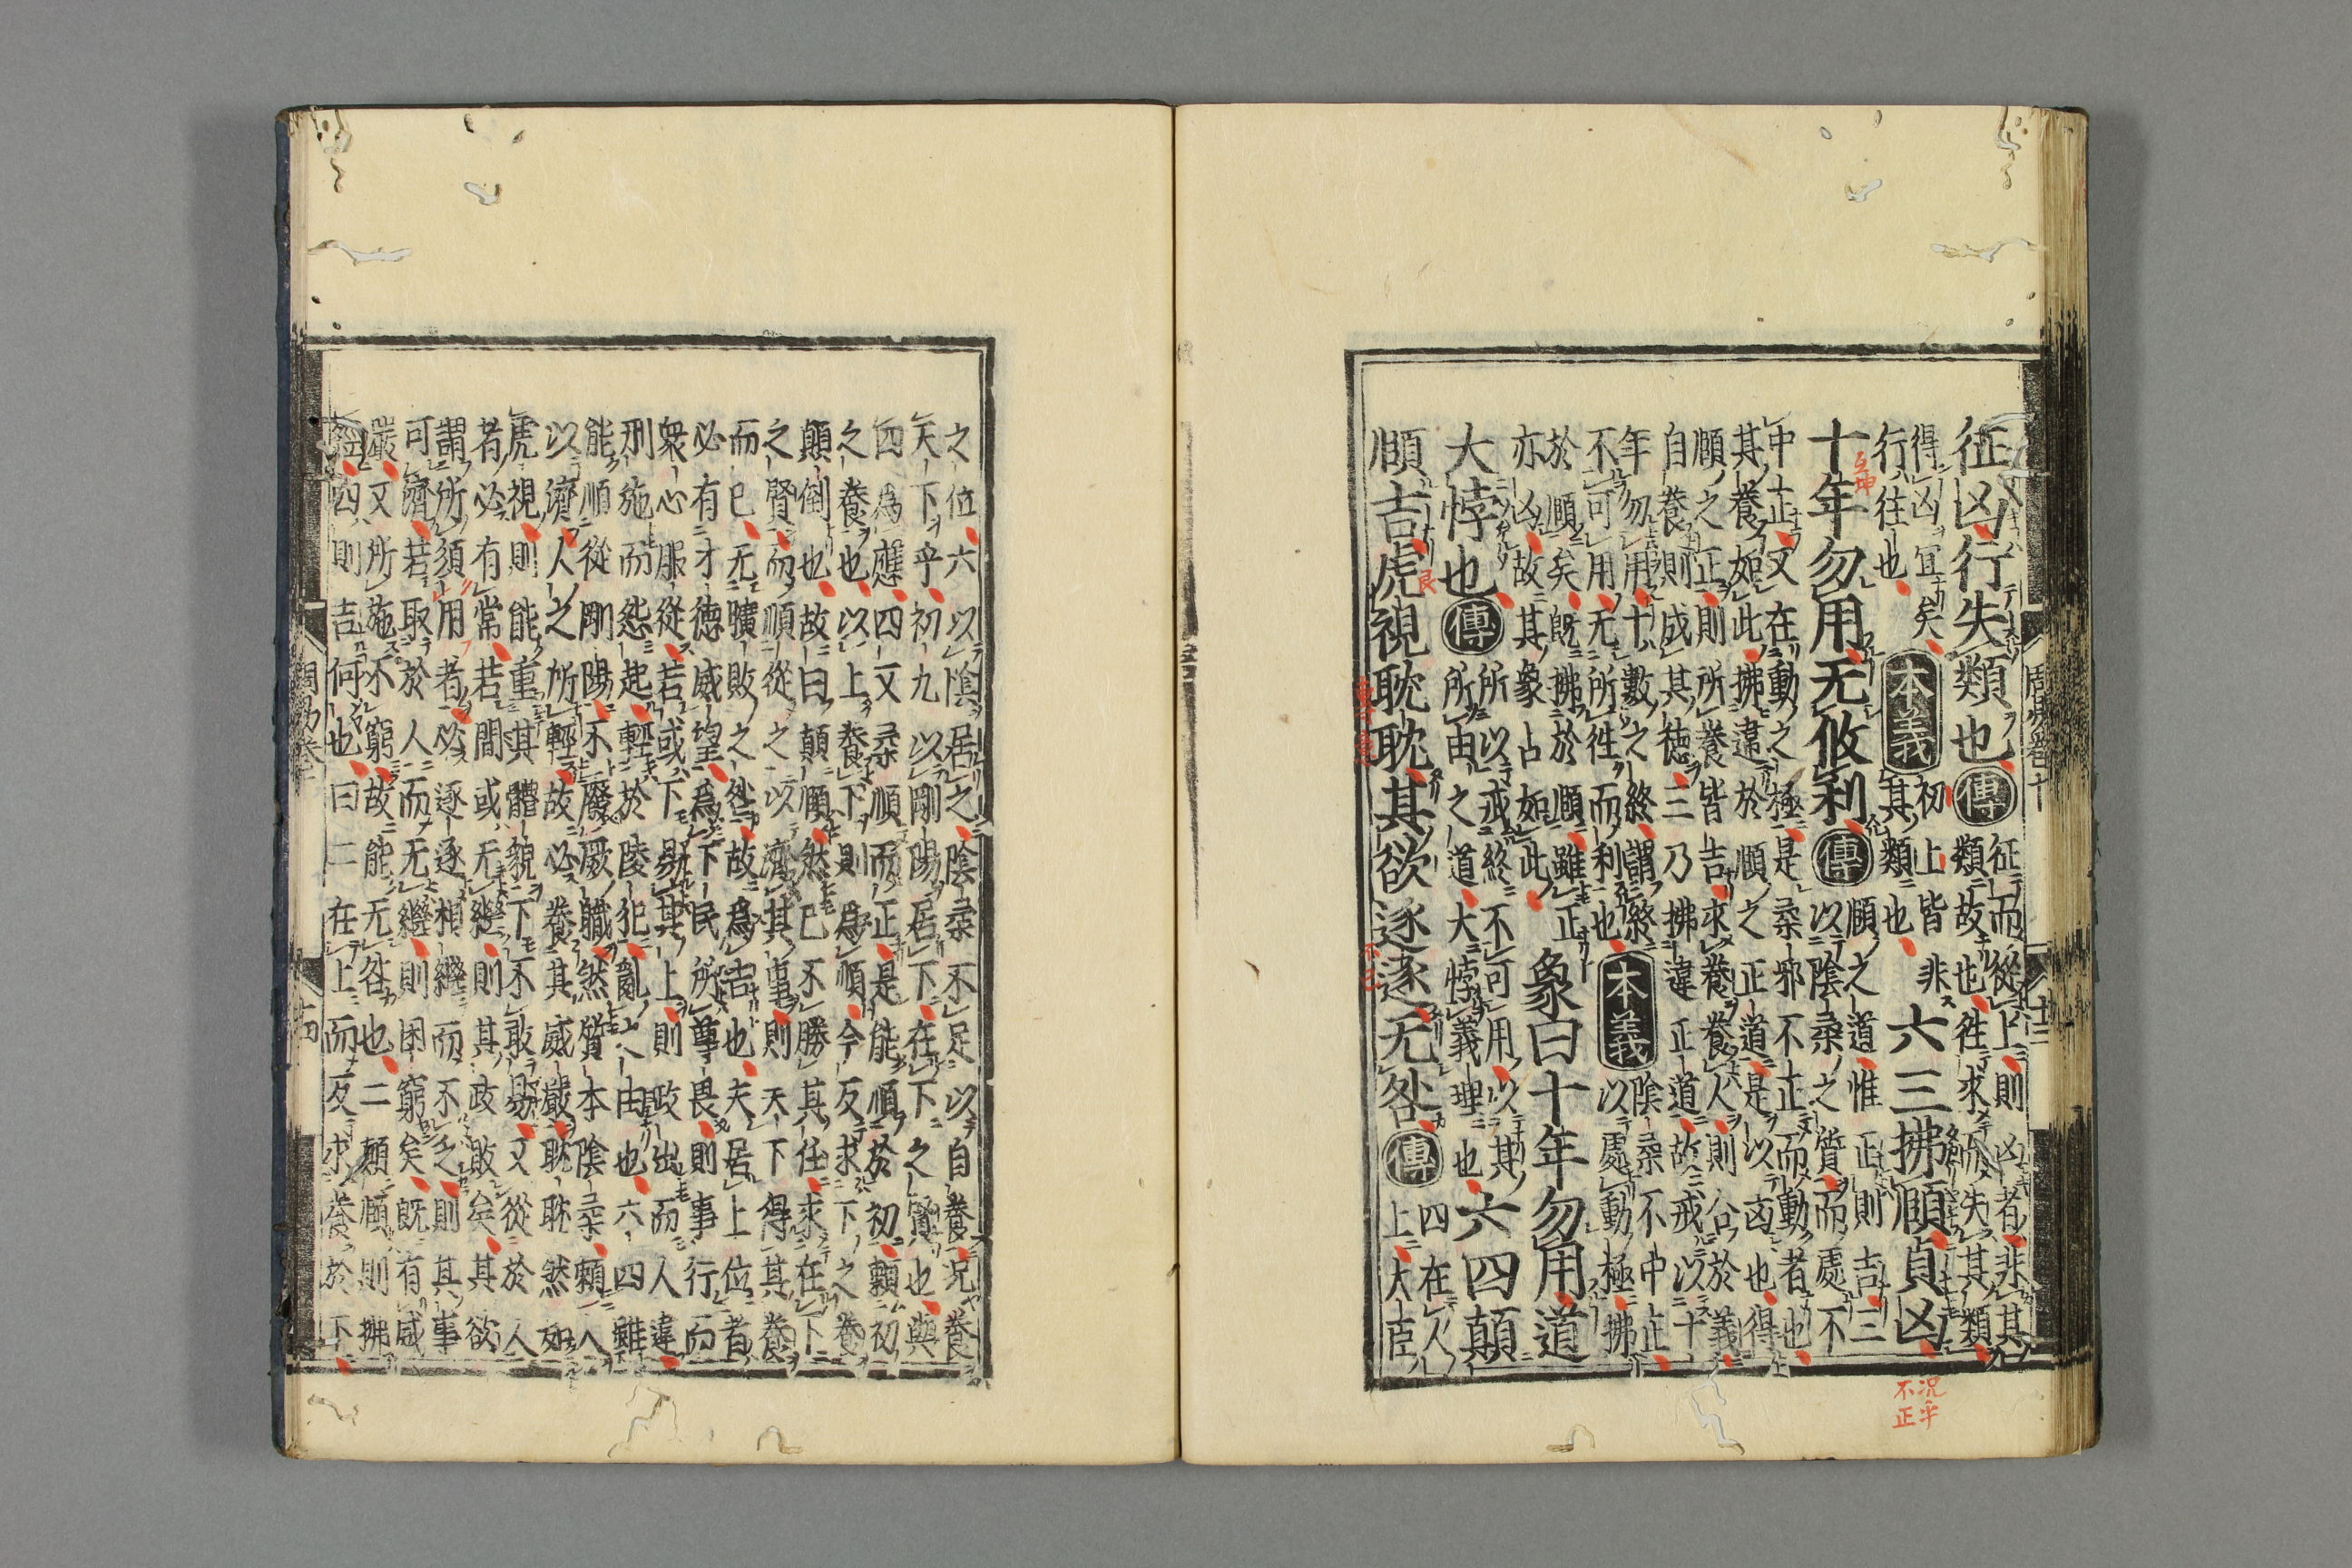 周易卷十 十三
征凶行失類也傳征而從上則凶者非其
類故也往求而失其類
得凶宜矣
行往也
本義初上皆非
其類也
六三拂頤貞凶
十年勿用无攸利傳頤之道惟正則吉三
以陰柔之質而處不
中正又在動之極是柔邪不正而動者也
其養如此拂違於頤之正道是以凶也得
頤之正則所養皆吉求養養人則合於義
自養則成其徳三乃拂違正道故戒以十
年勿用十數之終謂終
不可用无所往而利也
本義陰柔不中正
以處動極拂
於頤矣既拂於頤雖正
亦凶故其象占如此
象曰十年勿用道
大悖也傳所以戒終不可用以其
所由之道大悖義理也
六四顛
頤吉虎視耽耽其欲逐逐无咎傳四在人
上大臣
互坤
艮
况乎
不正
之位六以陰居之陰柔不足以自養况養
天下乎初九以剛陽居下在下之賢也與
四為應四又柔順而正是能順於初頼初
之養也以上養下則為順今反求下之養
顛倒也故曰顛頤然已不勝其任求在下
之賢而順從之以濟其事則天下得其養
而已无曠敗之咎故為吉也夫居上位者
必有才德威望為下民所尊畏則事行而
衆心服從若或下易其上則政出而人違
刑施而怨起輕於陵犯亂之由也六四雖
能順從剛陽不廢厥職然質本陰柔頼人
以濟人之所輕故必養其威嚴耽耽然如
虎視則能重其體貌下不敢易又從於人
者必有常若間或无繼則其政敗矣其欲
謂所須用者必逐逐相繼而不乏則其事
可濟若取於人而无繼則困窮矣既有威
嚴又所施不窮故能无咎也二顛頤則拂
經四則吉何也曰二在上而反求養於下
周易卷十 十四